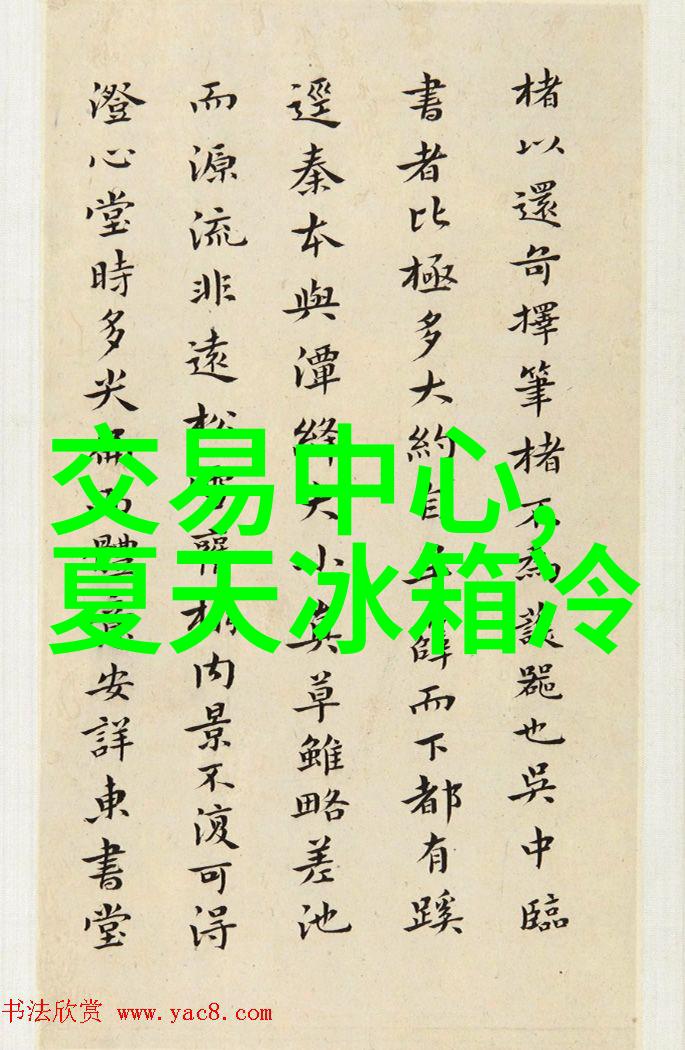 交易中心,
夏天冰箱冷
楮以還擇筆楮不為談噐也吳中臨
書者比極多大約自薛而下都有蹊
逕秦本與潭絳大小真草雖略差池
而源流非遠松內景不復可得
澄心堂時多尖體安詳東書堂
书法欣赏 www.yac8.com